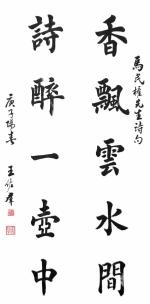 香飄雲水間
詩醉一壺中
馬民權先生詩句
庚子陽春
王佑群